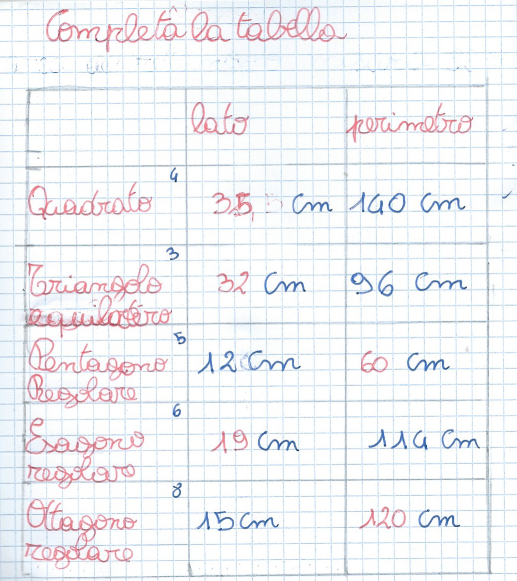 Completa la tabella
lato perimetro
4
Quadrato 35 cm 140 cm
3
Triangolo 32 cm 96 cm
equilatero
5
Pentagono 12 cm 60 cm
Regolare
6
Esagono 19 cm 114 cm
regolare
8
Ottagono 15 cm 120 cm
regolare